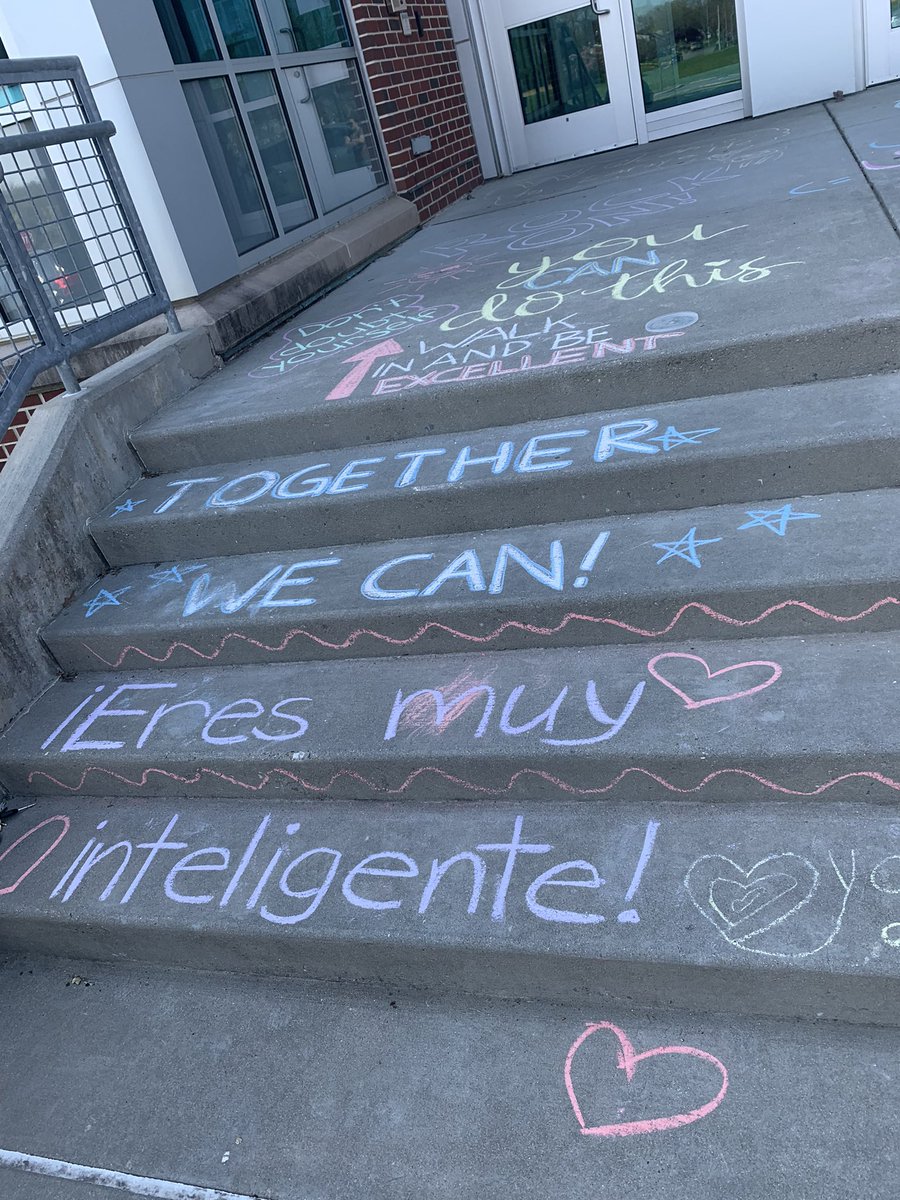 YOU ROCK
you
CAN
do this
Don't
doubt
yourself
WALK
IN AND BE
EXCELLENT
TOGETHER
WE CAN!
¡Eres muy
inteligente!